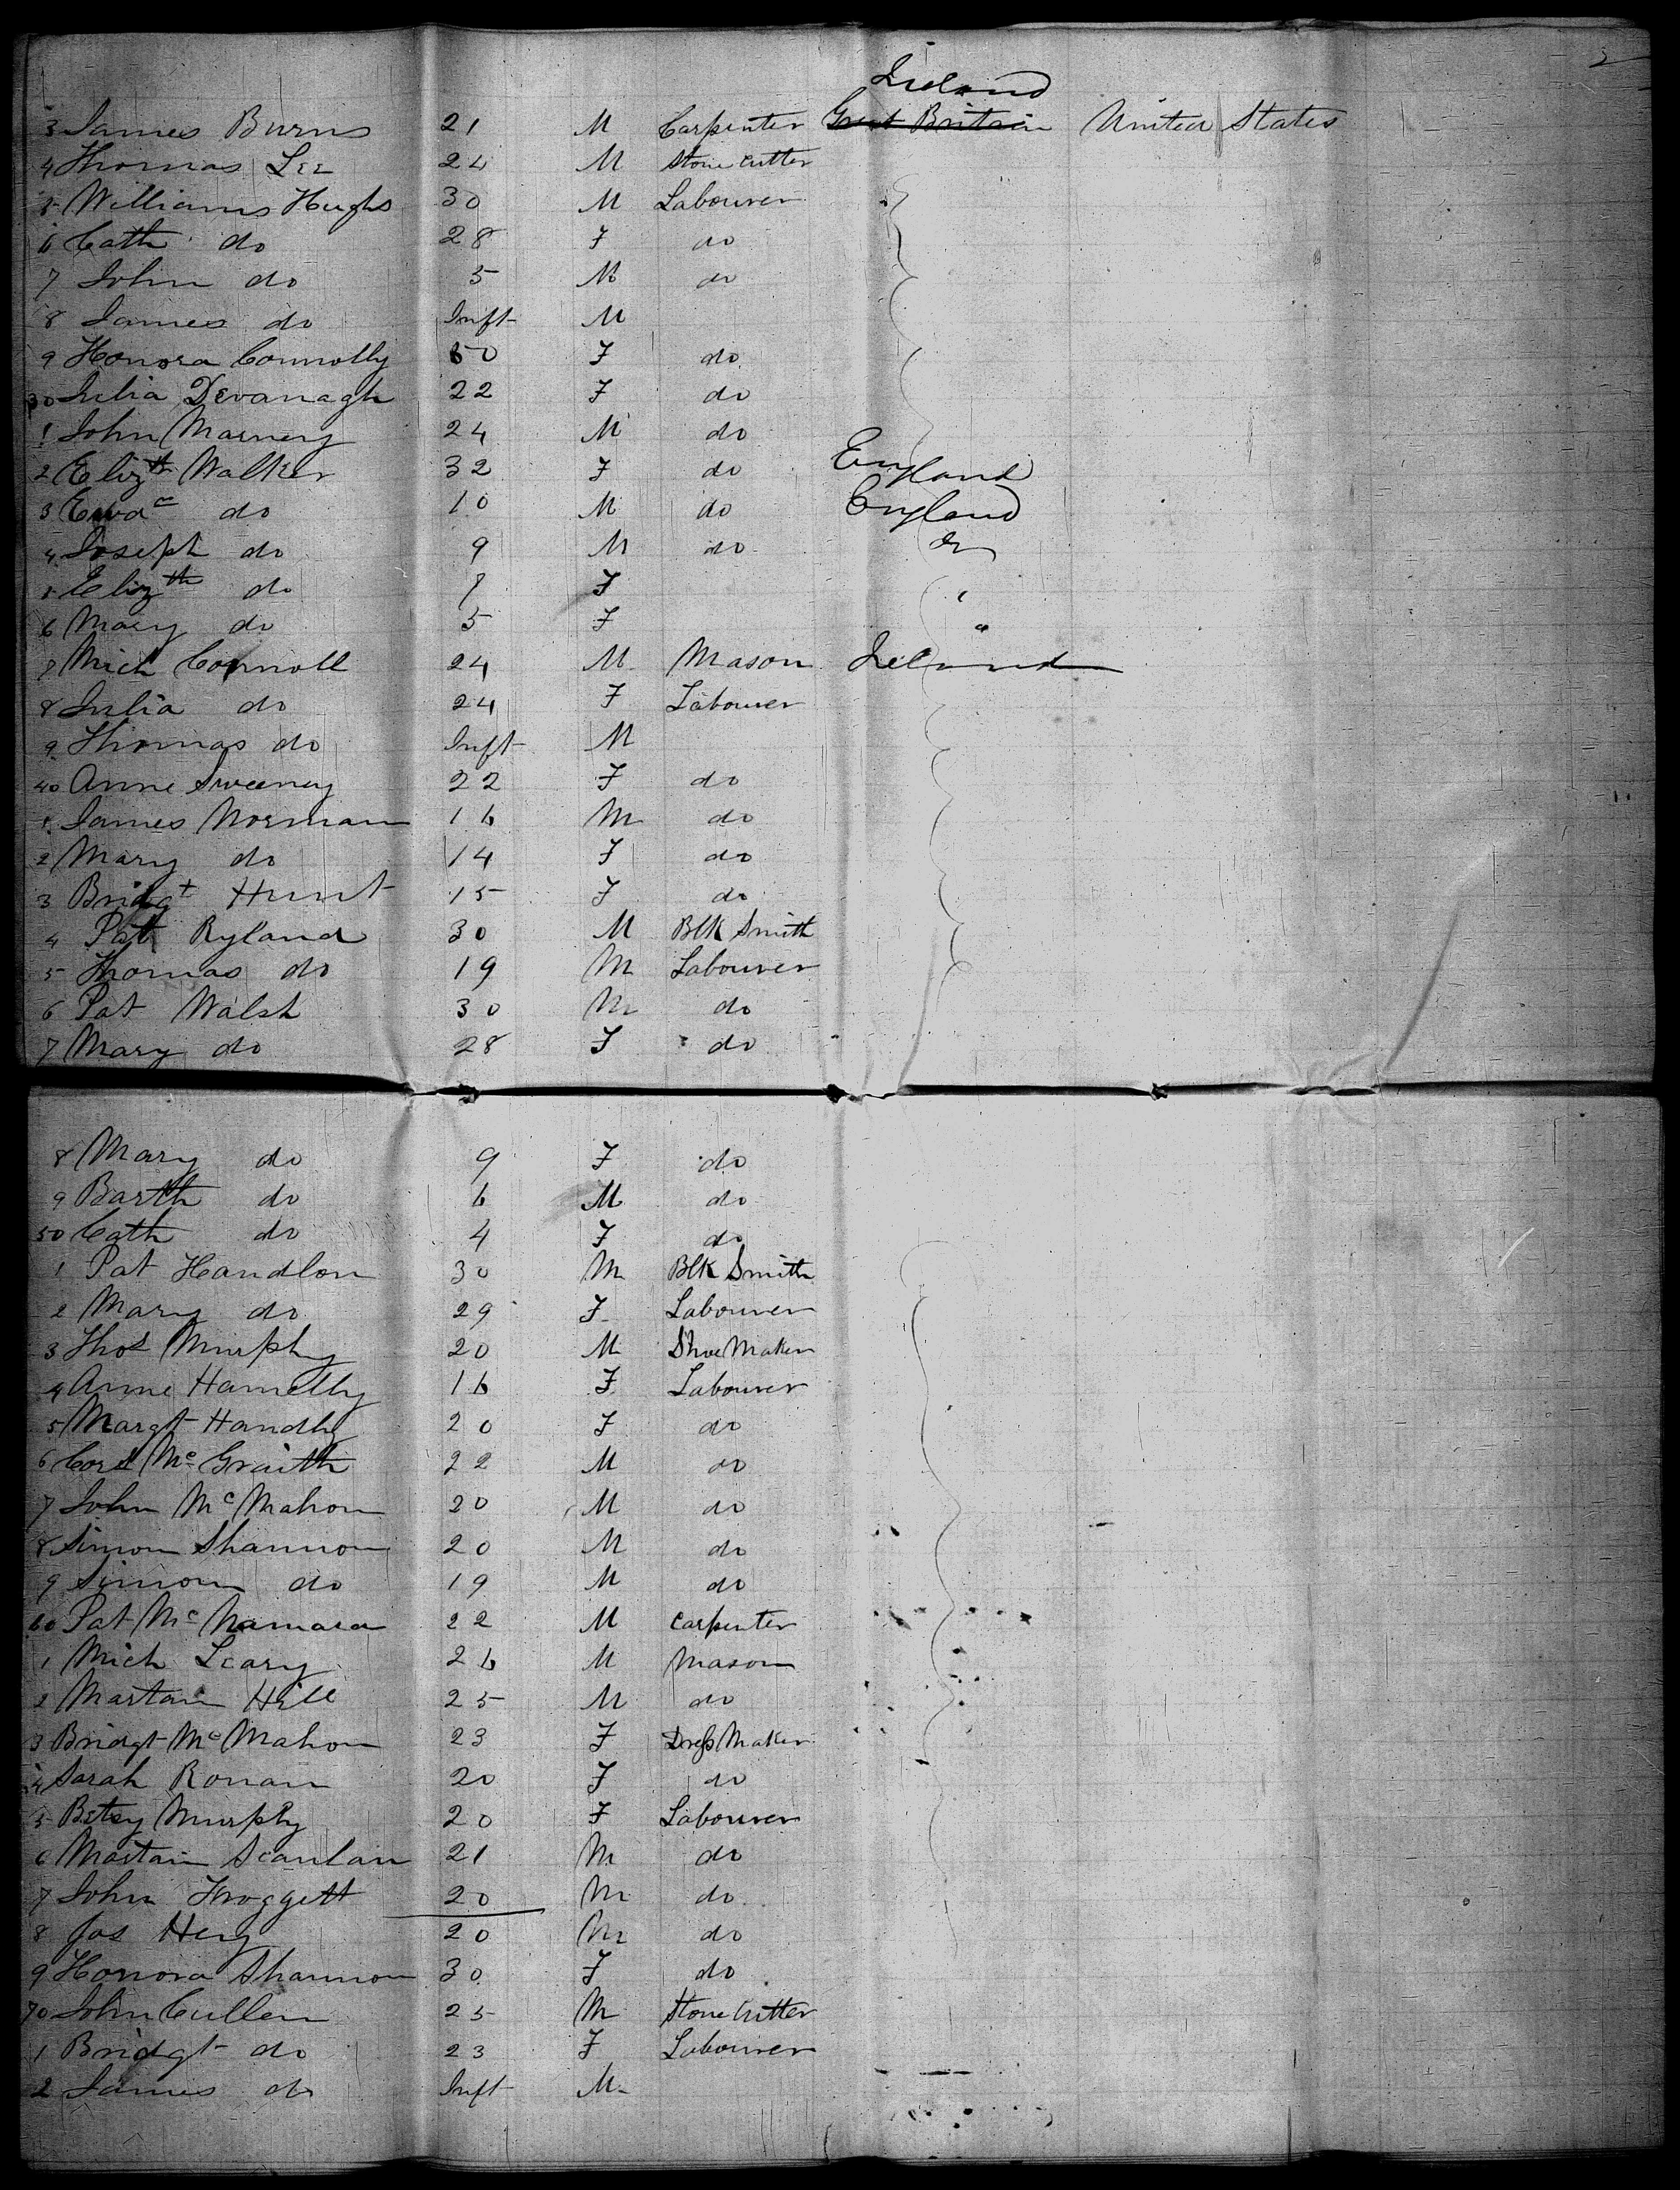 2
Ireland
3 James Burns 21 M Carpenter Great Britain United States
4 Thomas Lee 24 M Stone Cutter
5 Williams Hughs 30 M Labourer
6 Cath do 28 F do
7 John do 5 M do
8 James do Inft M
9 Honora Connolly 50 F do
30 Julia Devanagh 22 F do
1 John Marnery 24 M do
2 Elizth Walker 32 F do England
3 Edwd do 10 M do England
4 Joseph do 9 M do do
5 Elizth do 8 F "
6 Mary do 5 F "
7 Mich Connoll 24 M Mason Ireland
8 Julia do 24 F Labourer
9 Thomas do Inft M
40 Anne Sweeney 22 F do
1 James Norman 16 M do
2 Mary do 14 F do
3 Bridgt Hunt 15 F do
4 Pat Ryland 30 M Blk Smith
5 Thomas do 19 M Labourer
6 Pat Walsh 30 M do
7 Mary do 28 F do
8 Mary do 9 F do
9 Barth do 6 M do
50 Cath do 4 F do
1 Pat Handlon 30 M Blk Smith
2 Mary do 29 F Labourer
3 Thos Murphy 20 M Shoe Maker
4 Anne Hamelly 16 F Labourer
5 Margt Handly 20 F do
6 Corn Mc Graith 22 M do
7 John Mc Mahon 20 M do
8 Simon Shannon 20 M do
9 Simon do 19 M do
60 Pat Mc Namara 22 M Carpenter
1 Mich Leary 26 M Mason
2 Martain Hill 25 M do
3 Bridgt Mc Mahon 23 F Dress Maker
4 Sarah Ronan 20 F do
5 Betsy Murphy 20 F Labourer
6 Martain Scanlan 21 M do
7 John Froggett 20 M do
8 Jas Hey 20 M do
9 Honora Shannon 30 F do
70 John Cullen 25 M Stone Cutter
1 Bridgt do 23 F Labourer
2 James do Inft M